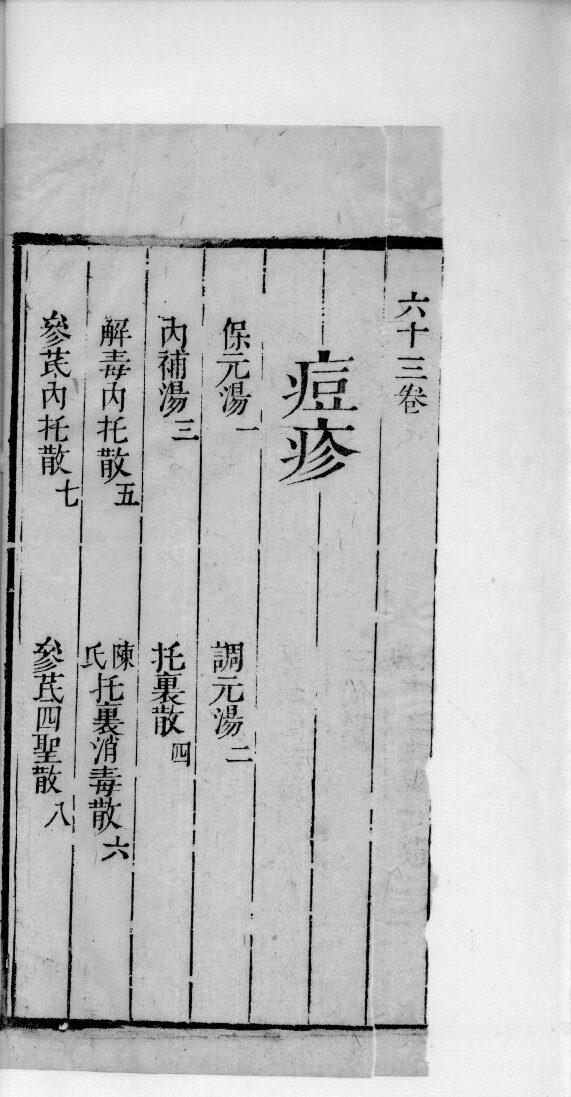 六十三卷
痘疹
保元湯一
調元湯二
內補湯三
托裏散四
解毒內托散五
陳氏托裏消毒散六
參芪內托散七
參芪四聖散八